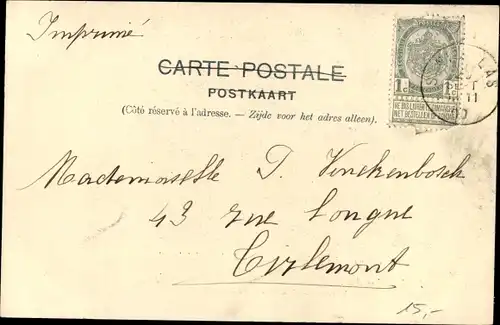 Imprimé
CARTE POSTALE
POSTKAART
(Côté réservé à l'adresse. — Zijde voor het adres alleen).
1c 1c
NIET BESTELLEN OP
LAS
11
Mademoiselle T. Vinckenbosch
43 rue longue
Tirlemont
15,-